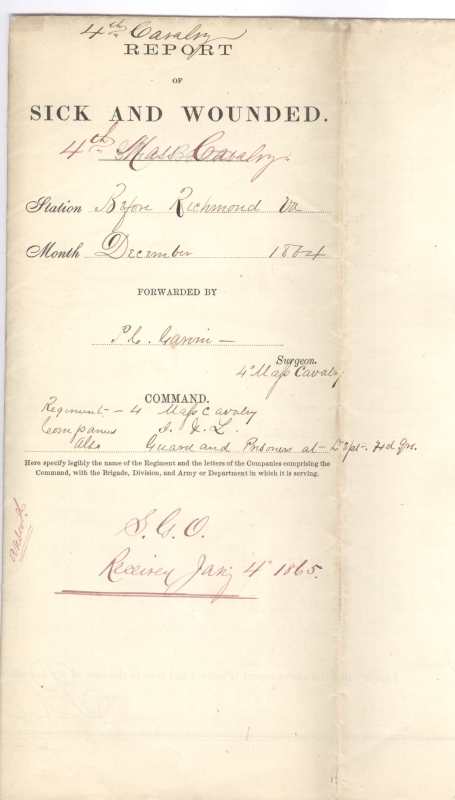 4th Cavalry
REPORT
OF
SICK AND WOUNDED.
4th Mass Cavalry.
Station Before Richmond Va
Month December 1864
FORWARDED BY
P. C. Garvin —
Surgeon.
4" Mass Cavalry
COMMAND.
Regiment - 4 Mass Cavalry
Companies I. & L.
Also Guard and Prisoners at Dept. Hd Qrs.
Here specify legibly the name of the Regiment and the letters of the Companies comprising the
Command, with the Brigade, Division, and Army or Department in which it is serving.
S. G. O.
Received Jany 4" 1865.